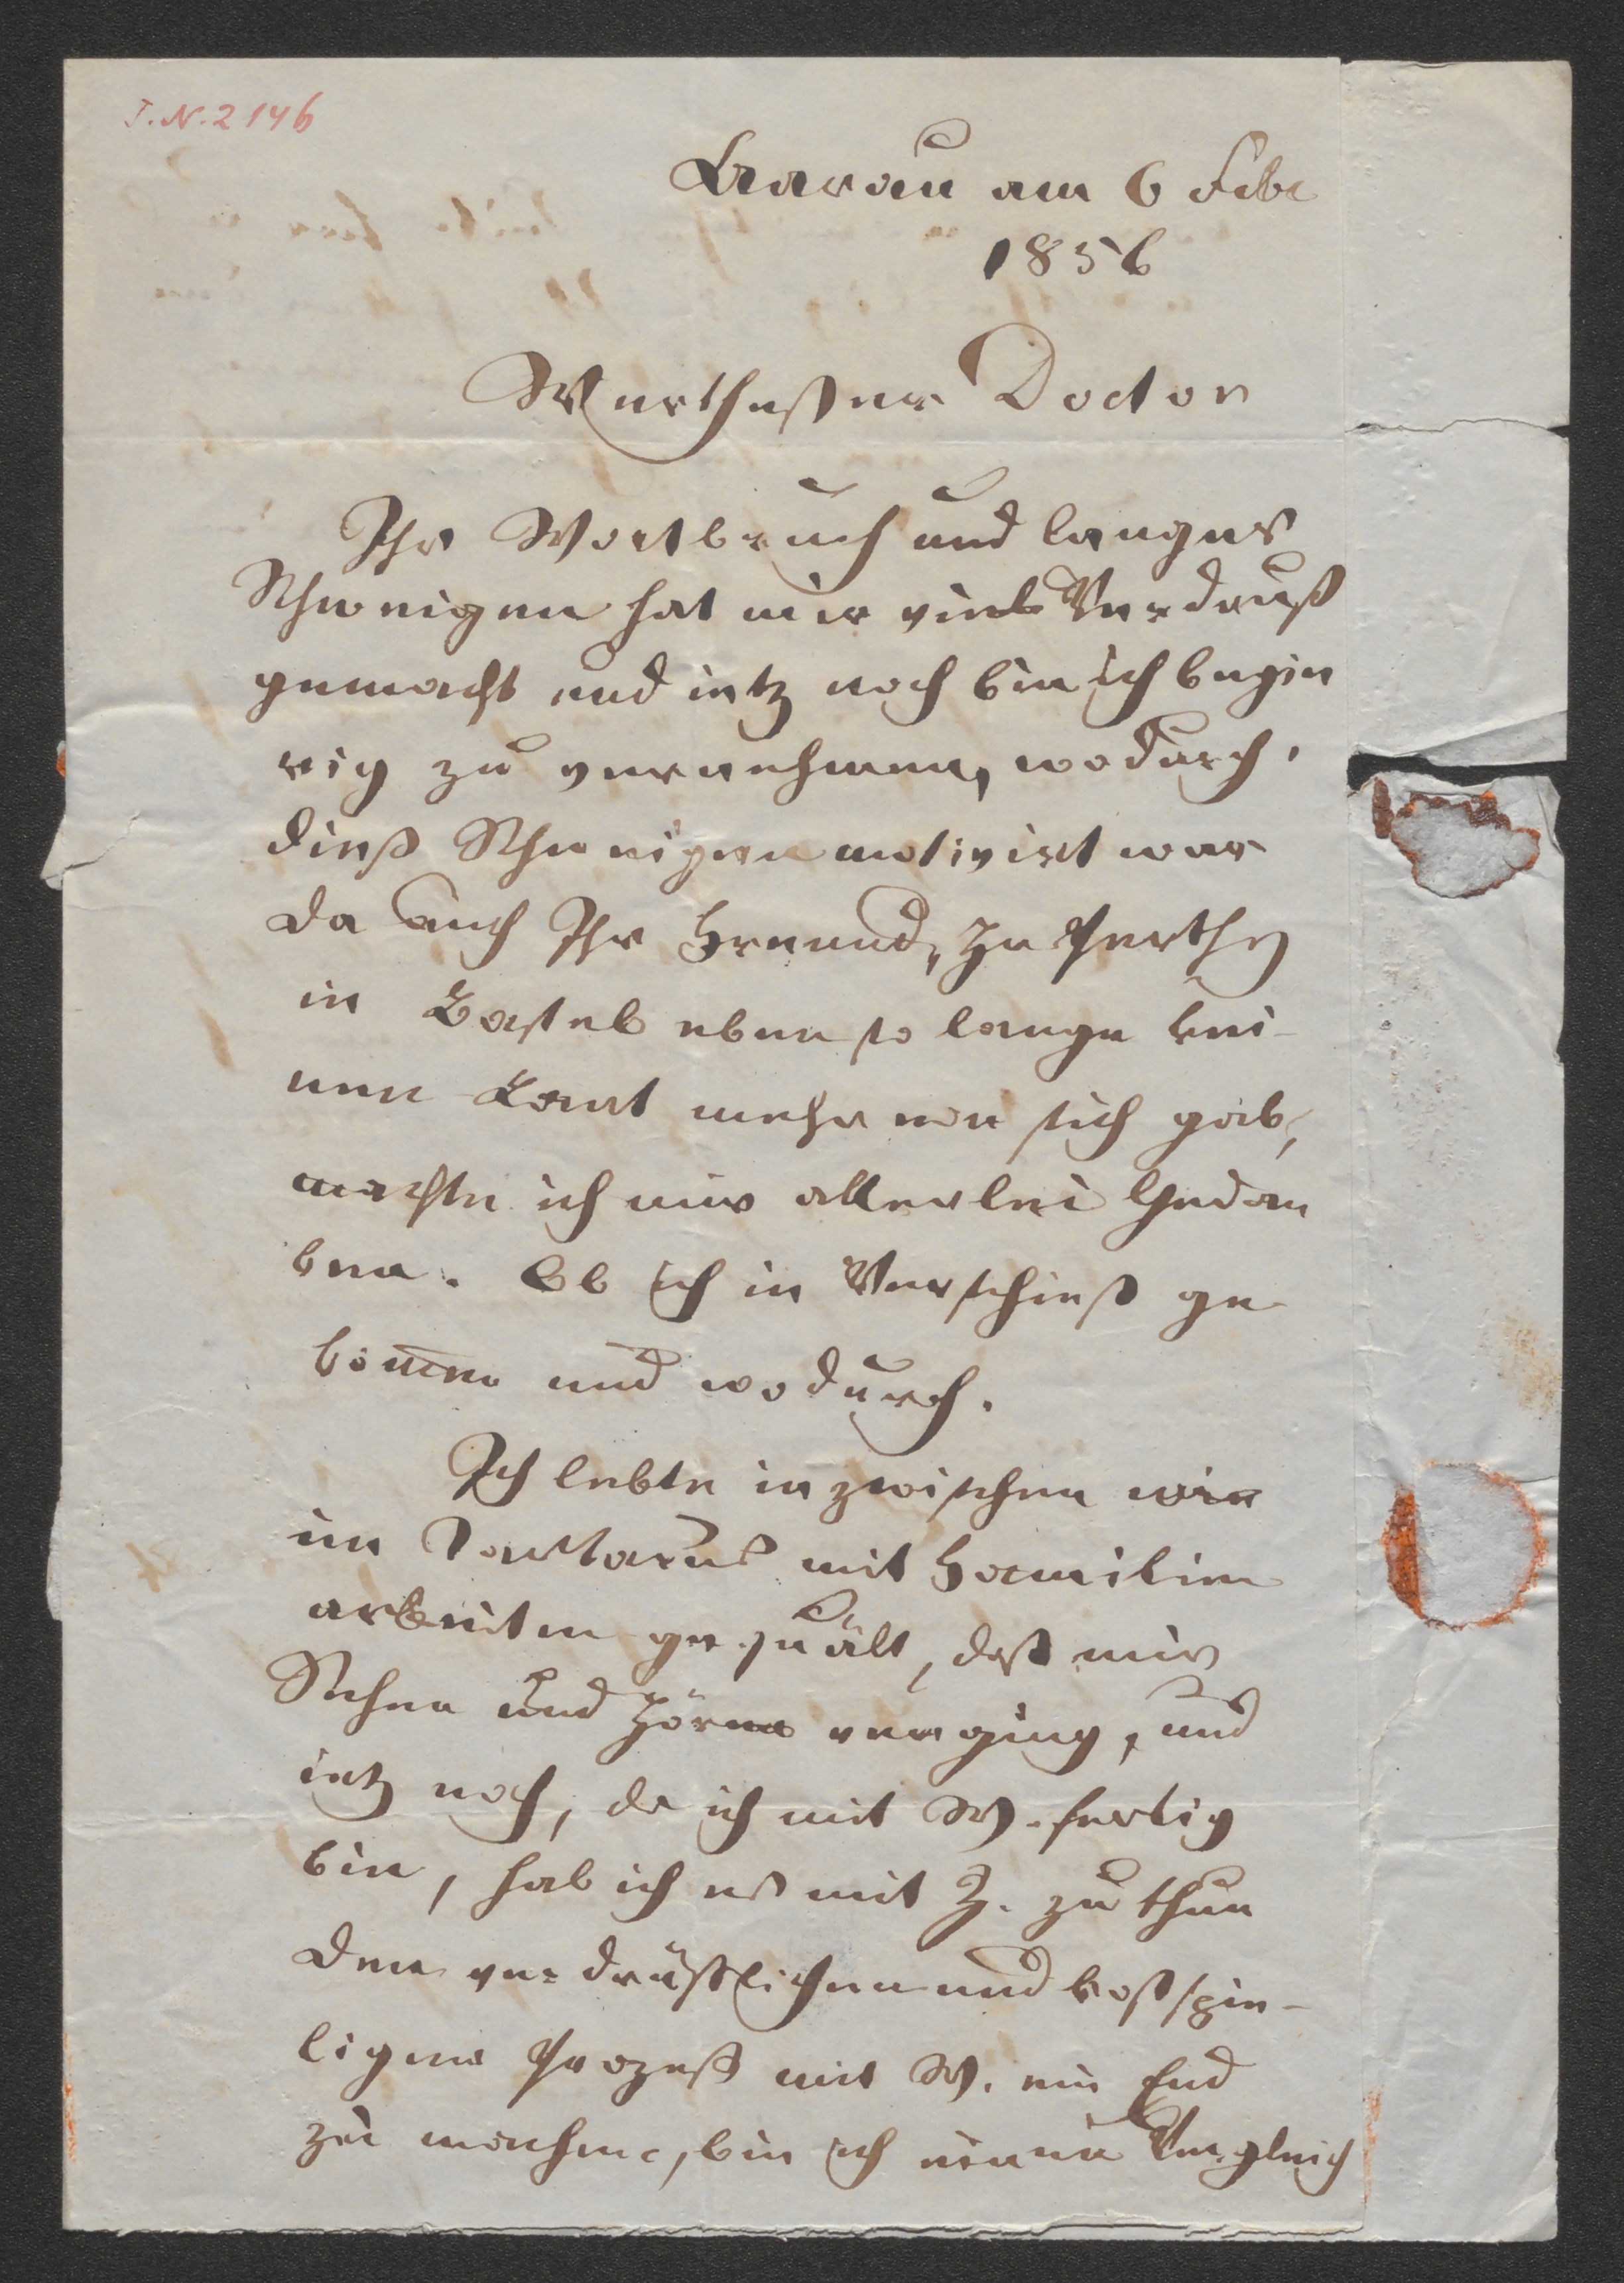 J.N. 2146
Aarau am 6 Febr
1856
Werthester Doctor
Ihr Wortbruch und langes
Schweigen hat mir viel Verdruß
gemacht und ietz noch bin ich begie
rig zu vernehmen, wodurch
dieß Schweigen motivirt war
da auch Ihr Freund, He Perthy
in Castel eben so lange kei-
nen Laut mehr von sich gab,
machte ich mir allerlei Gedan
ken. Ob ich in Verschieß ge
komme und wodurch.
Ich lebte inzwischen wie
im Tartarus mit Familien
arbeiten gequält, daß mir
Sehen und Hören verging, und
ietz noch, da ich mit W. fertig
bin, hab ich es mit Z. zu thun
Dem verdrüßlichen und kostspie-
ligen Prozeß mit W. ein End
zu machen, bin ich einen Vergleich